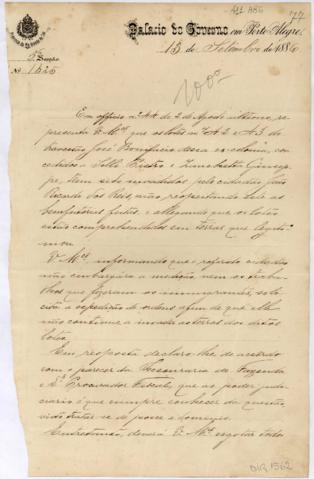 411 ABG
177
Palacio do Governo em Porto Alegre,
15 de Setembro de 1886
2ª Secção
Nº 1525
Em officio nº 44 de 2 de Agosto ultimo, re-
presenta V. Mcê que os lotes nº 42 e 43 do
travessão José Bonifacio dessa ex-colonia, con-
cedidos a Sello Pietro e Zanchetta Giusep-
pe, tem sido invadidos pelo cidadão João
dos Reis, não respeitando este as
bemfeitorias feitas, e allegando que os lotes
estão comprehendidos em terras que legiti-
mou.
V. Mcê, informando que o referido cidadão
não embargára a medição nem os traba-
lhos que fizeram os immigrantes, soli-
cita a expedição de ordens afim de que elle
não continue a invadir as terras dos ditos
lotes.
Em resposta declaro-lhe, de accordo
com o parecer da Thesouraria de Fazenda
e Dr. Procurador Fiscal, que ao poder judi-
ciario é que cumpre conhecer da questão,
visto tratar-se de posse e dominio.
Entretanto, deverá V. Mcê esgotar todos
DIR.1562